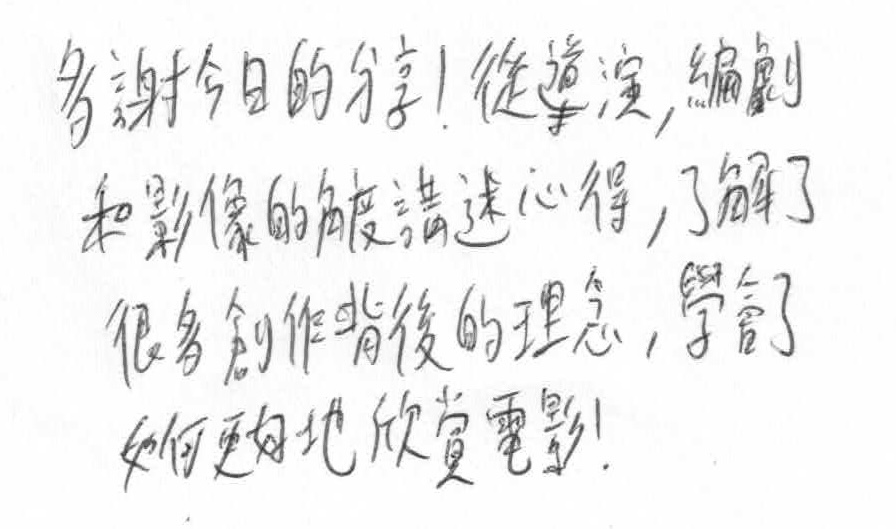 多謝今日的分享！從導演，編劇
和影像的角度講述心得，了解了
很多創作背後的理念，學會了
如何更好地欣賞電影！